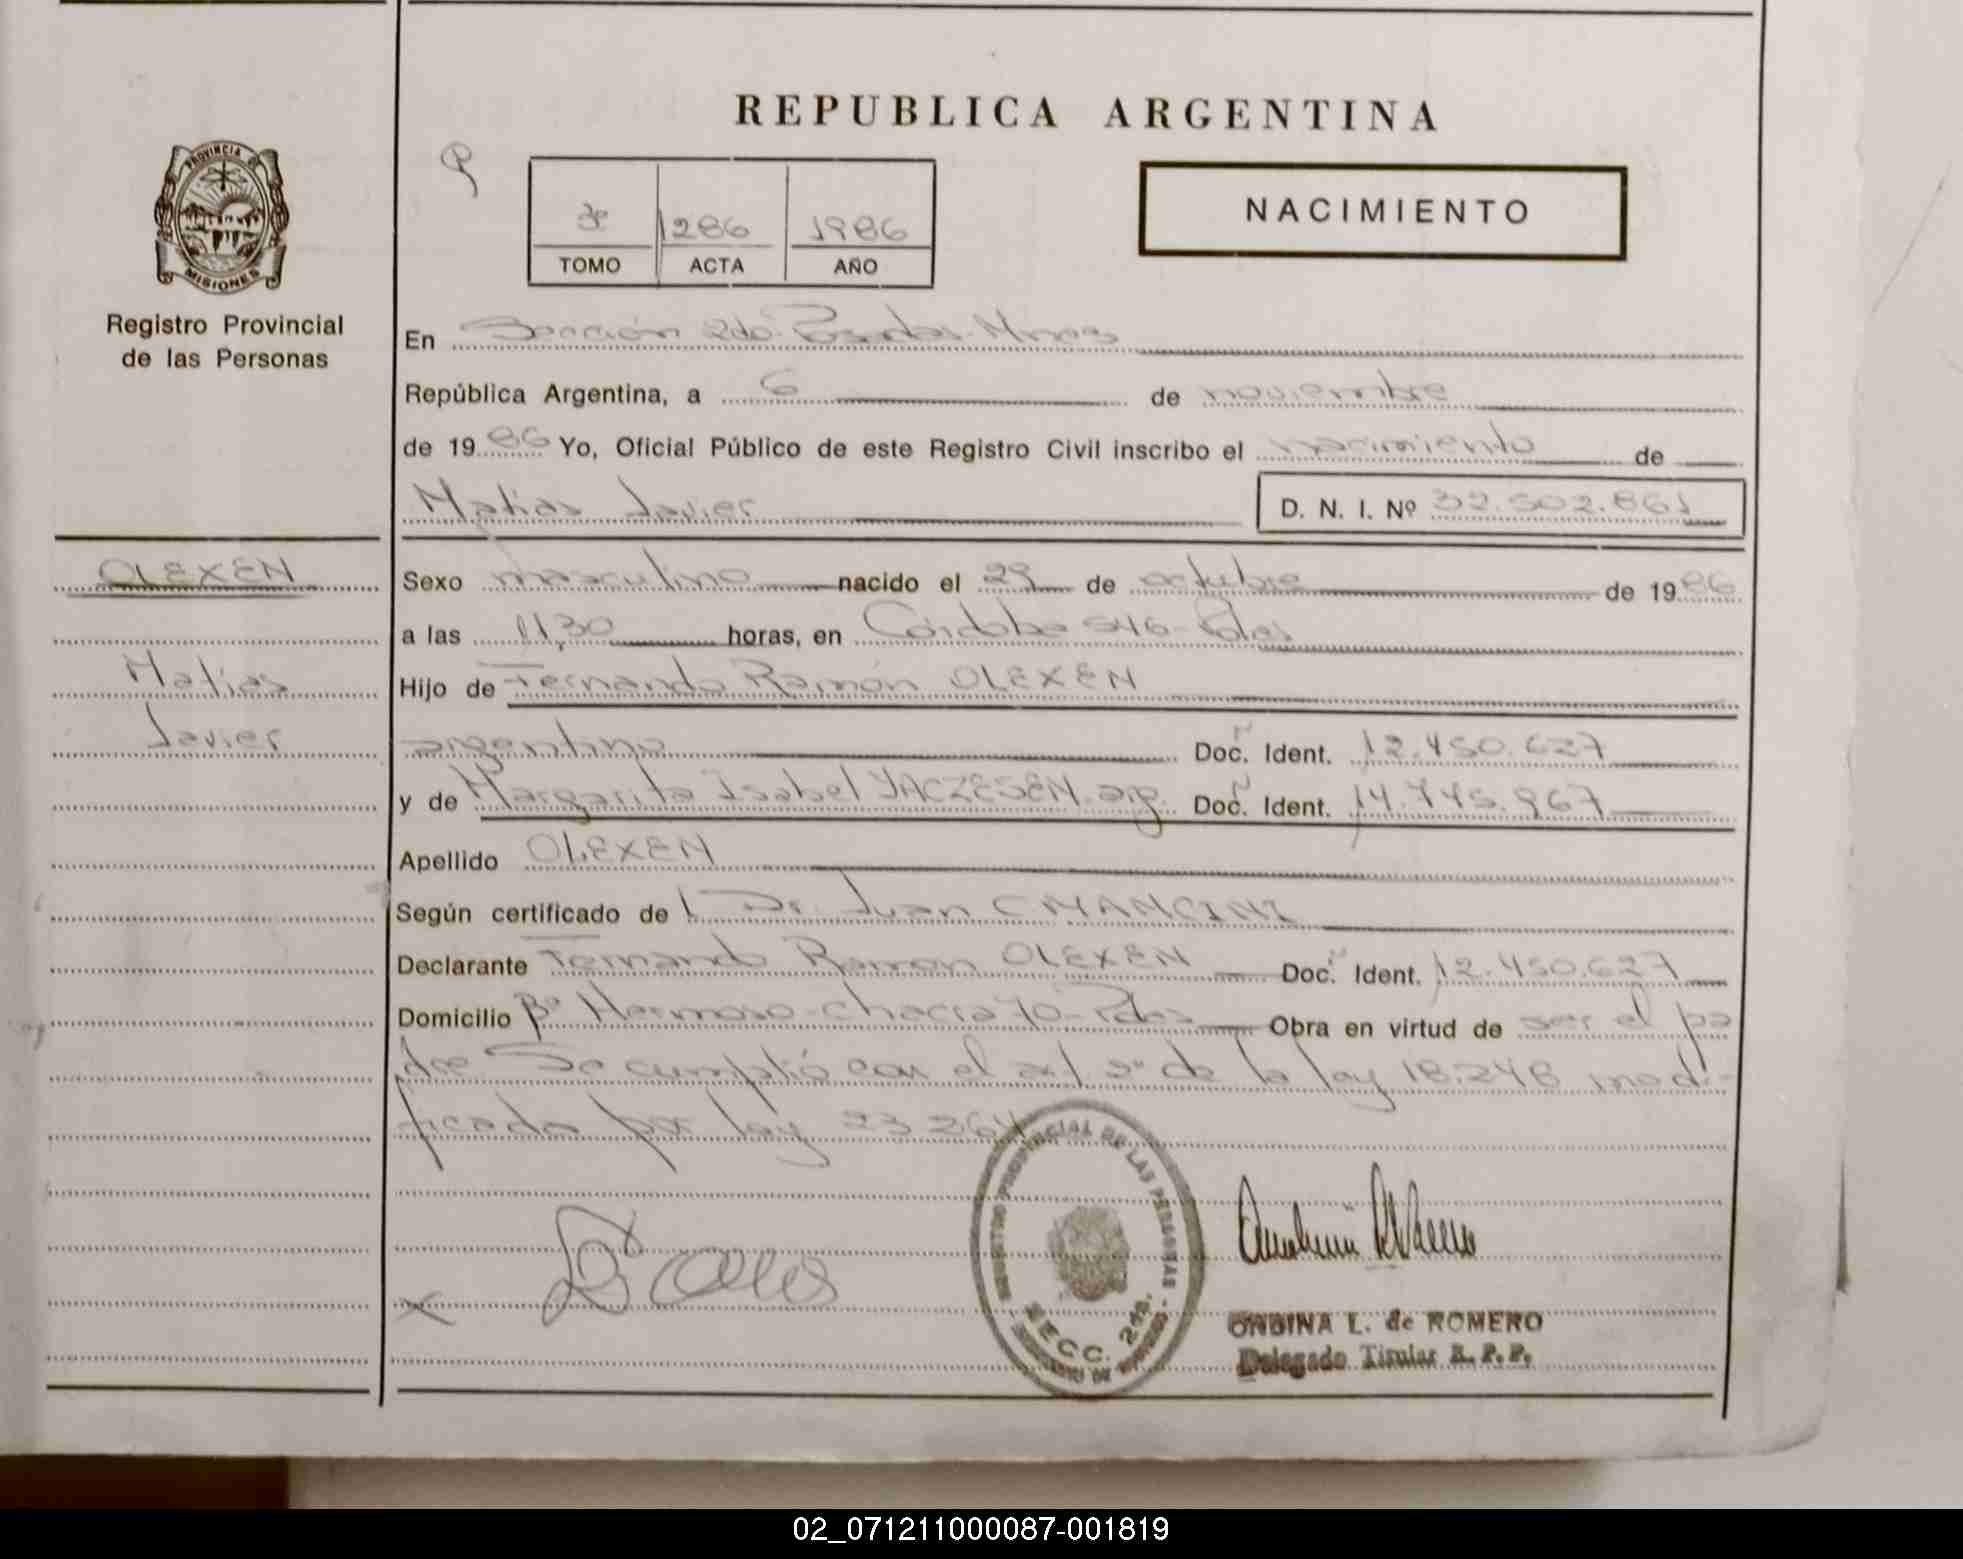 REPUBLICA ARGENTINA
PROVINCIA DE
MISIONES
Registro Provincial
de las Personas
3º 1286 1986
TOMO ACTA AÑO
NACIMIENTO
En Sección 2da Posadas Mnes
República Argentina, a 6 de noviembre
de 1986 Yo, Oficial Público de este Registro Civil inscribo el nacimiento de
Matias Javier D. N. I. Nº 32.502.861
OLEXEN
Matias
Javier
Sexo masculino nacido el 29 de octubre de 1986
a las 11,30 horas, en Córdoba 546-Pdas
Hijo de Fernando Ramón OLEXEN
argentino Doc. Ident. 12.450.627
y de Margarita Isabel YACZESEN arg. Doc. Ident. 14.745.967
Apellido OLEXEN
Según certificado de Dr. Juan C MANCINI
Declarante Fernando Ramon OLEXEN Doc. Ident. 12.450.627
Domicilio Bº Hermoso-chacra 70-Pdas Obra en virtud de ser el pa
dre Se cumplió con el art 2º de la ley 18.248 modi-
ficada por ley 23264
REGISTRO PROVINCIAL DE LAS PERSONAS
SECC. 2da.
ONDINA L. de ROMERO
Delegado Titular R. P. P.
02_071211000087-001819